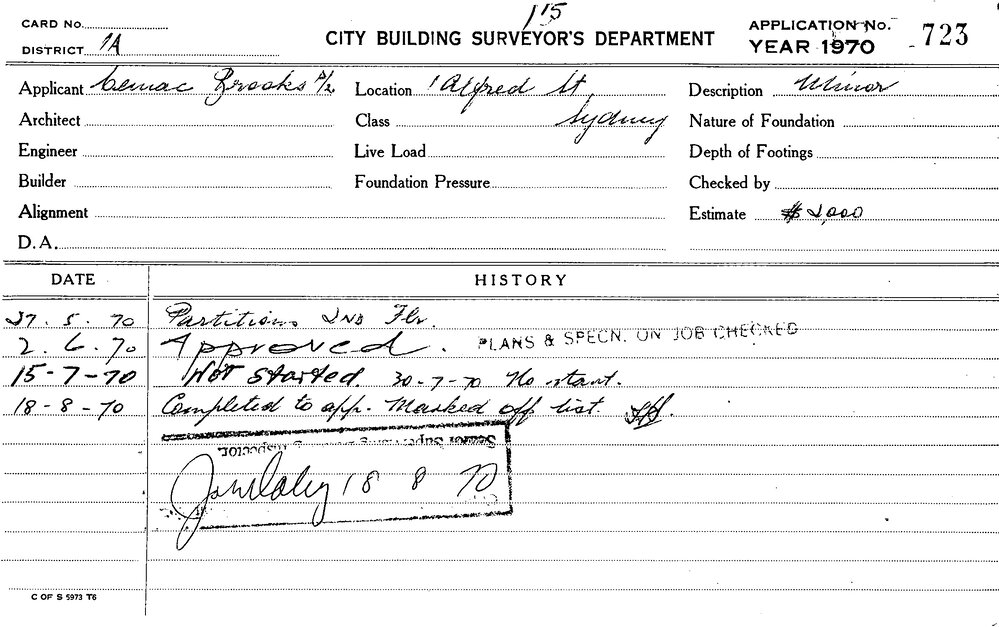 115
CARD No.
CITY BUILDING SURVEYOR'S DEPARTMENT
APPLICATION No. 723
DISTRICT 1A
YEAR 1970
Applicant Cemac Brooks P/L
Location 1 Alfred St,
Description Minor
Architect
Class Sydney
Nature of Foundation
Engineer
Live Load
Depth of Footings
Builder
Foundation Pressure
Checked by
Alignment
Estimate $2,000
D.A.
DATE HISTORY
27. 5. 70 Partitions 2ND Flr.
2. 6. 70 Approved. PLANS & SPECN. ON JOB CHECKED
15-7-70 Not started. 30-7-70 No start.
18-8-70 Completed to app. Marked off list.
Senior Supervising Building Inspector.
18 8 70
C OF S 5973 T6